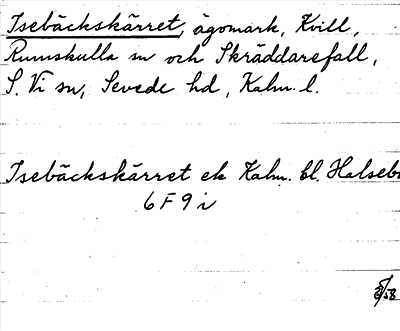 Isebäckskärret, ägomark, Kvill,
Rumskulla sn och Skräddarefall,
S. Vi sn, Sevede hd, Kalm. l.
Isebäckskärret ek Kalm. bl. Halsebo
6 F 9 i